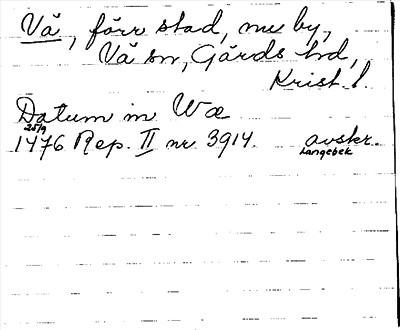 Vä, förr stad, nu by,
Vä sn, Gärds hd,
Krist. l.
Datum in Wæ
25/9
1476 Rep. II nr 3914. avskr.
Langebek